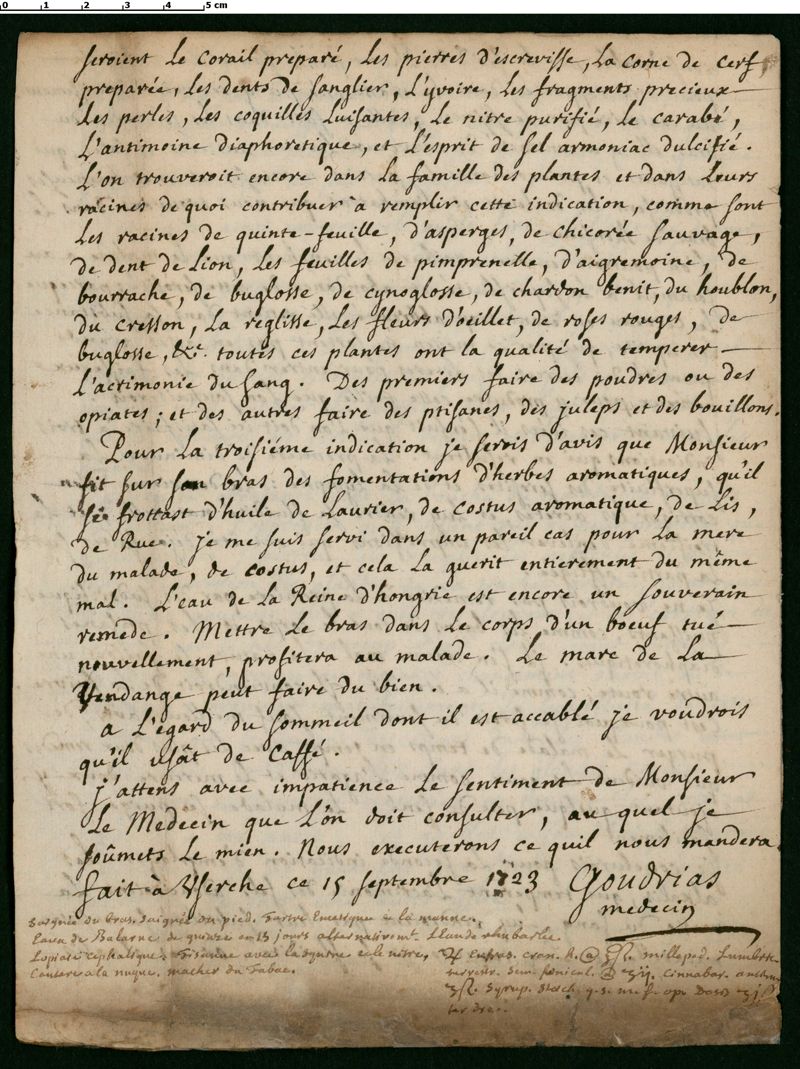 0 1 2 3 4 5 cm
seroient le corail preparé, les pierres d'escrevisse, la corne de cerf
preparée, les dents de sanglier, l'yvoire, les fragments precieux
les perles, les coquilles luisantes, le nitre purifié, le carabé,
l'antimoine diaphoretique, et l'esprit de sel armoniac dulcifié.
l'on trouveroit encore dans la famille des plantes et dans leurs
racines de quoi contribuer a remplir cette indication, comme sont
les racines de quinte-feuille, d'asperges, de chicorée sauvage,
de dent de lion, les feuilles de pimprenelle, d'aigremoine, de
bourrache, de buglosse, de cynoglosse, de chardon benit, du houblon,
du cresson, la reglisse, les fleurs d'oeillet, de roses rouges, de
buglosse, &c. toutes ces plantes ont la qualité de temperer
l'acrimonie du sang. Des premiers faire des poudres ou des
opiates; et des autres faire des ptisanes, des juleps et des bouillons.
Pour la troisiéme indication je serois d'avis que Monsieur
fit sur son bras des fomentations d'herbes aromatiques, qu'il
se frottast d'huile de Laurier, de costus aromatique, de Lis,
de Rue. je me suis servi dans un pareil cas pour la mere
du malade, de costus, et cela la guerit entierement du même
mal. L'eau de la Reine d'hongrie est encore un souverain
remede. Mettre le bras dans le corps d'un boeuf tué
nouvellement, profitera au malade. Le marc de la
Vendange peut faire du bien.
a l'egard du sommeil dont il est accablé je voudrois
qu'il usât de Caffé.
j'attens avec impatience le sentiment de Monsieur
le Medecin que l'on doit consulter, au quel je
soûmets le mien. Nous executerons ce quil nous mandera.
fait à Userche ce 15 septembre 1723 Goudrias
medecin
Saignée du bras. Saignée du pied. Tartre Emetique e la manne.
Eaux de Balarnes de quinze en 15 jours alternativemt. L'eau de rhubarbe
Lopiate cephalique. Tisanne avec la squine e le nitre.
Cautere a la nuque. macher du Tabac.
millepéd. Lumbric.
terrestr. Sem. fœnicul. Cinnabar.
Syrup. Stœch. q.s. m. f. op. Dosis